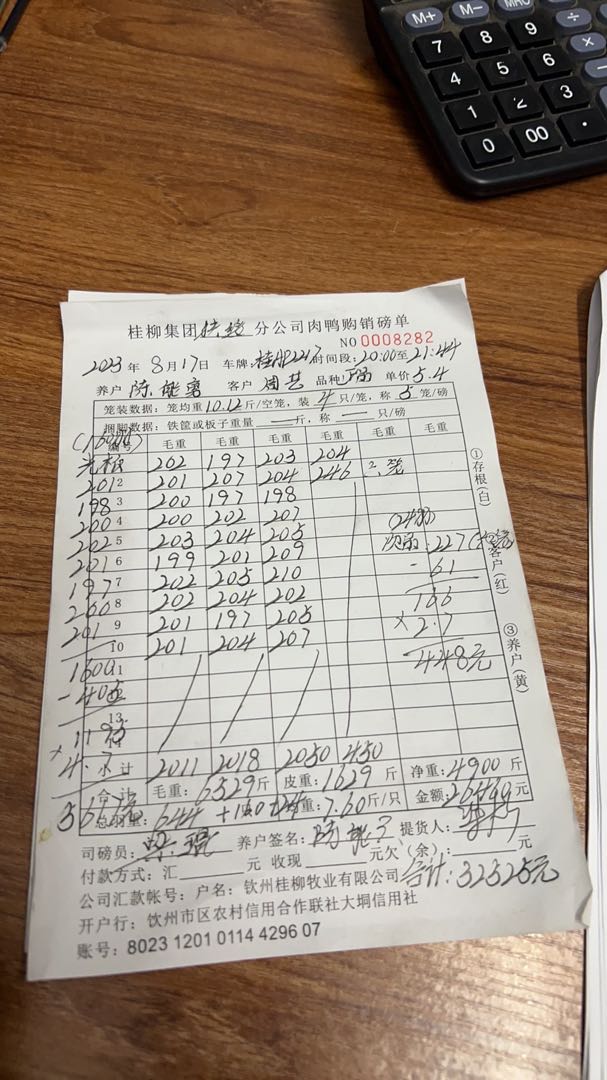 M+ M- MRC
7 8 9 ÷
4 5 6 ×
1 2 3 -
0 00 ·
桂柳集团 分公司肉鸭购销磅单
NO 0008282
2023 年 8 月 17 日 车牌: 桂 2217 时间段: 20:00 至 21:44
养户 陈 客户 周艺 品种 单价 5.4
笼装数据: 笼均重 10.12 斤/空笼, 装 4 只/笼, 称 5 笼/磅
捆脚数据: 铁筐或板子重量 — 斤, 称 — 只/磅
编号 毛重 毛重 毛重 毛重 毛重
202 197 203 204
201 2 201 207 204 246 2笼
198 3 200 197 198
200 4 200 202 207
202 5 203 204 205 227
201 6 199 201 209 - 61
197 7 202 205 210 166
200 8 202 204 202 × 2.7
201 9 201 197 205 448元
10 201 204 207
小计 2011 2018 2050 450
合计 毛重: 6529 斤 皮重: 1629 斤 净重: 4900 斤
总羽重: 644 重: 7.60 斤/只 金额: 26460 元
司磅员: 养户签名: 提货人:
付款方式: 汇 元 收现 元 欠(余): 元
公司汇款帐号: 户名: 钦州桂柳牧业有限公司 合计: 32525元
开户行: 钦州市区农村信用合作联社大垌信用社
账号: 8023 1201 0114 4296 07
①存根(白)
②客户(红)
③养户(黄)